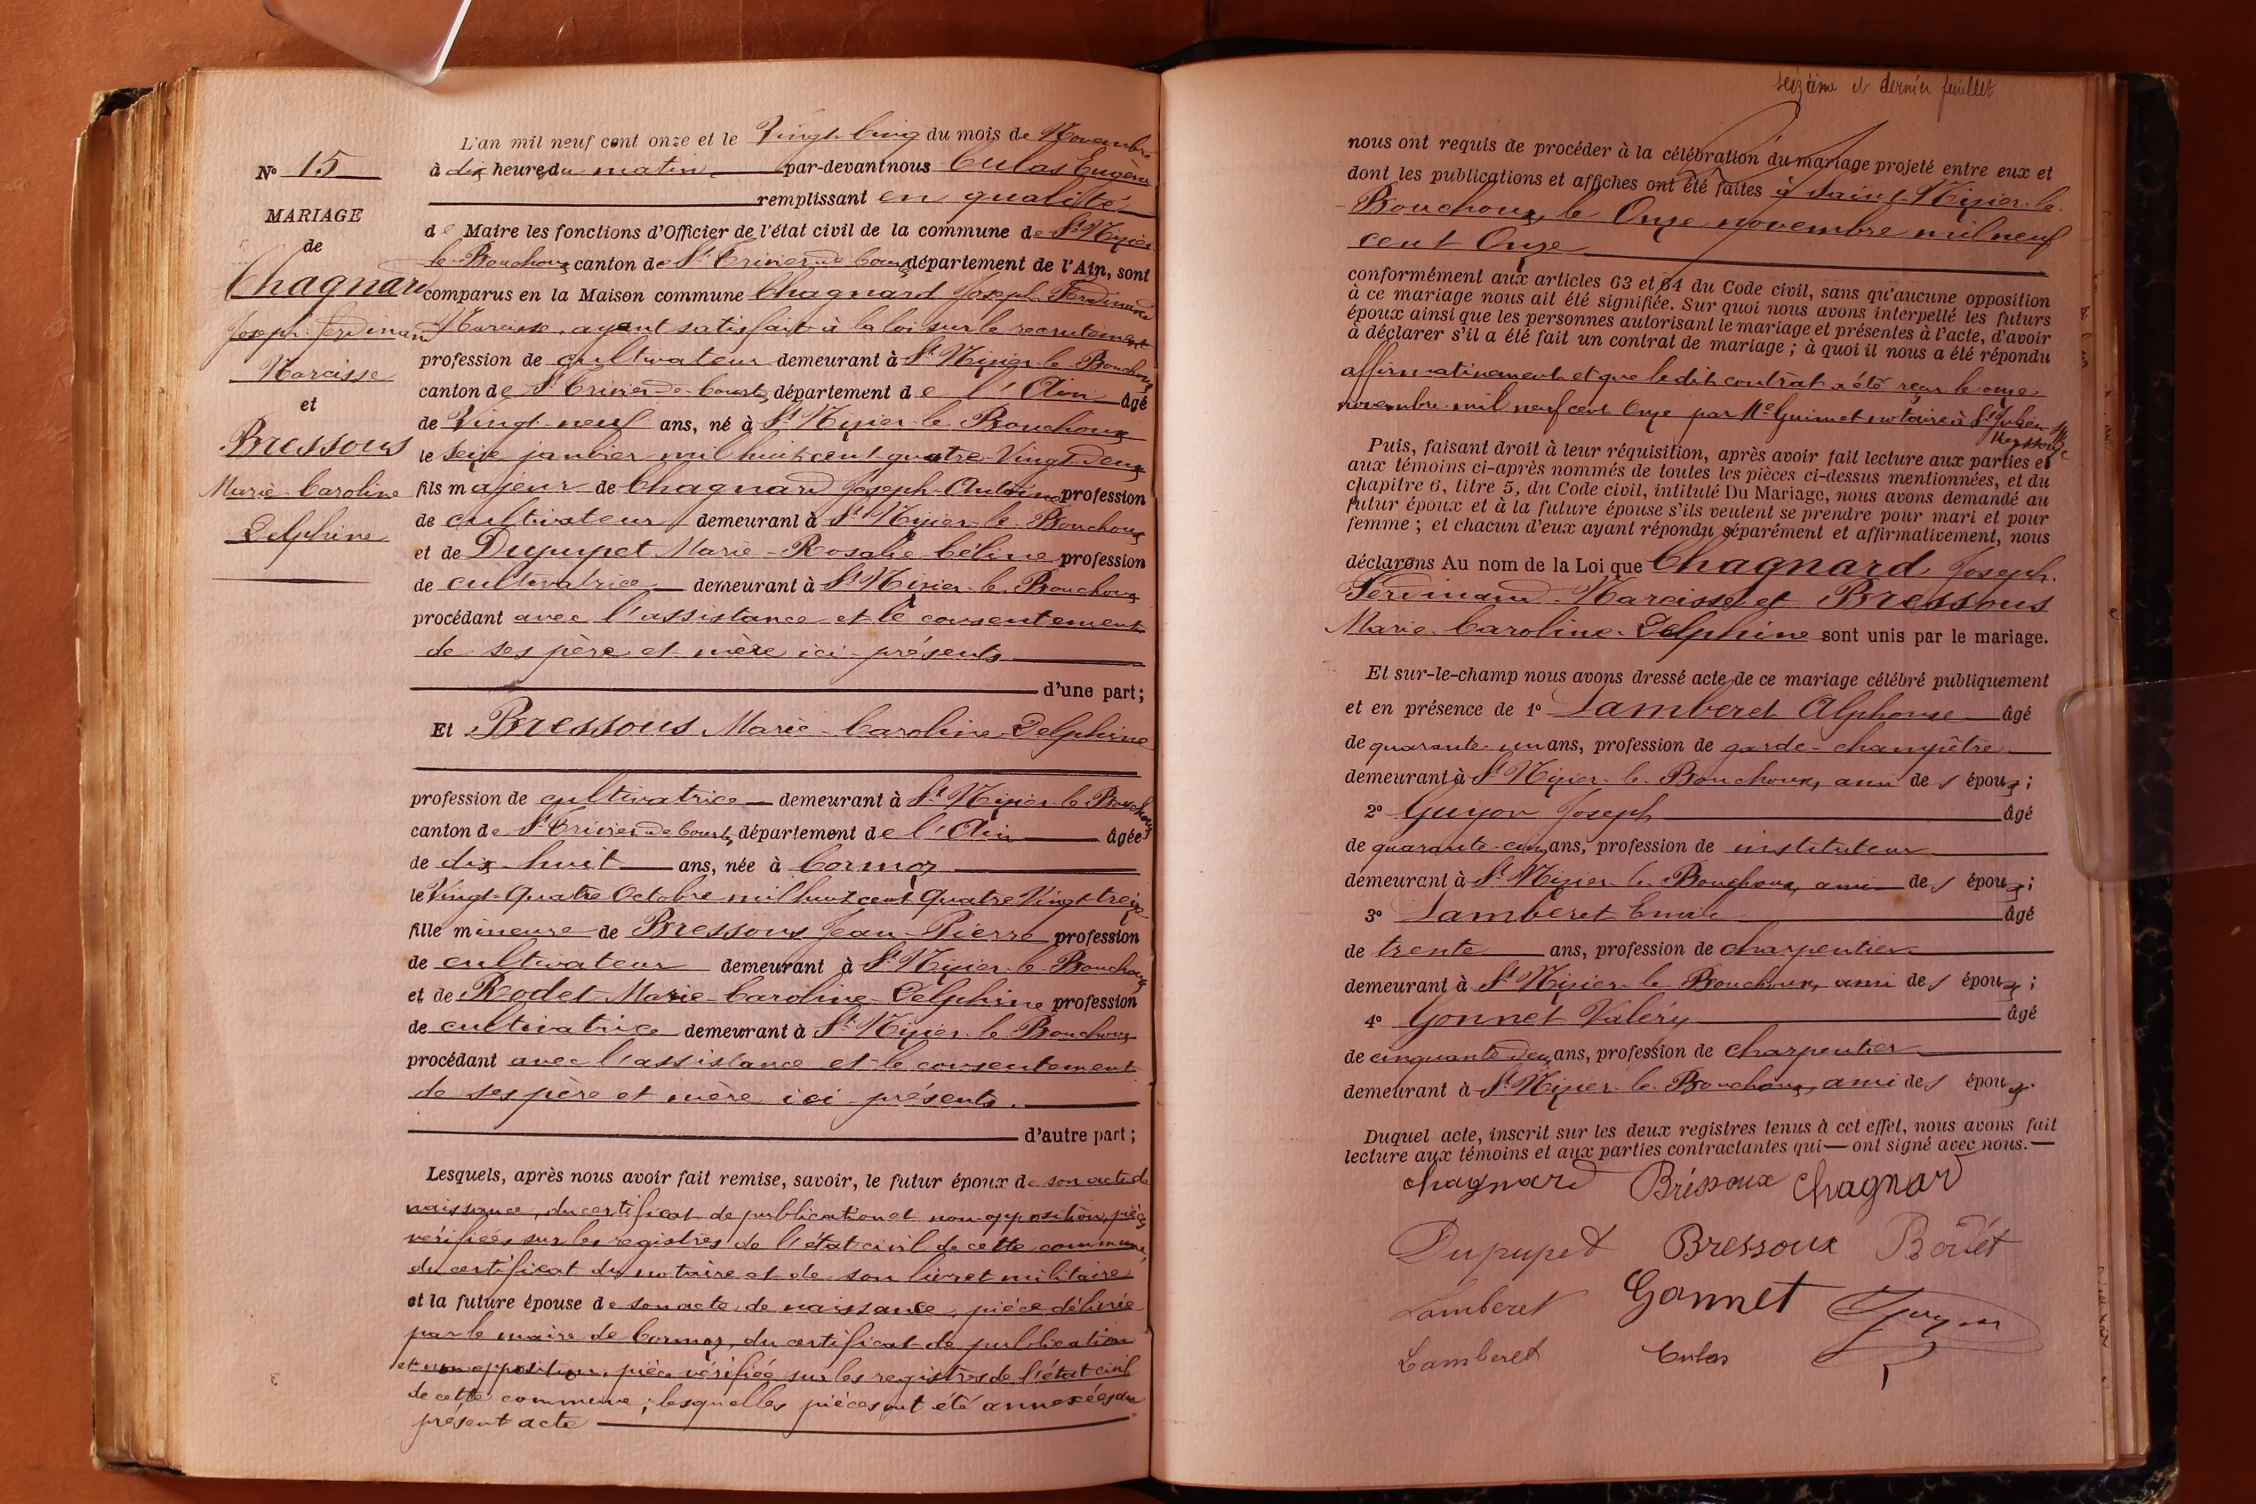 N° 15
MARIAGE
de
Chagnard
Joseph Ferdinand
Narcisse
et
Bressous
Marie-Caroline
Delphine
L'an mil neuf cent onze et le Vingt-Cinq du mois de Novembre
à dix heures du matin par-devant nous Culas Eugène
remplissant en qualité
de Maire les fonctions d'Officier de l'état civil de la commune de St Nizier
le Bouchoux canton de St Trivier de Courtes département de l'Ain, sont
comparus en la Maison commune Chagnard Joseph Ferdinand
Narcisse, ayant satisfait à la loi sur le recrutement
profession de cultivateur demeurant à St Nizier-le-Bouchoux
canton de St Trivier-de-Courtes département de l'Ain âgé
de Vingt-neuf ans, né à St Nizier-le-Bouchoux
le seize janvier mil huit cent quatre-Vingt-Deux
fils majeur de Chagnard Joseph-Antoine profession
de cultivateur demeurant à St Nizier-le-Bouchoux
et de Dupupet Marie-Rosalie-Céline profession
de cultivatrice demeurant à St Nizier-le-Bouchoux
procédant avec l'assistance et le consentement
de ses père et mère ici-présents
d'une part;
Et Bressous Marie-Caroline-Delphine
profession de cultivatrice demeurant à St Nizier-le-Bouchoux
canton de St Trivier de Courtes département de l'Ain âgée
de dix-huit ans, née à Cormoz
le Vingt-Quatre Octobre mil huit cent Quatre Vingt-treize
fille mineure de Bressoux Jean-Pierre profession
de cultivateur demeurant à St Nizier-le-Bouchoux
et de Rodet Marie-Caroline-Delphine profession
de cultivatrice demeurant à St Nizier-le-Bouchoux
procédant avec l'assistance et le consentement
de ses père et mère ici-présents.
d'autre part;
Lesquels, après nous avoir fait remise, savoir, le futur époux de son acte de
naissance, du certificat de publication et non-opposition, pièces
vérifiées sur les registres de l'état civil de cette commune,
du certificat du notaire et de son livret militaire
et la future épouse de son acte de naissance, pièce délivrée
par le maire de Cormoz, du certificat de publication
et non opposition, pièce vérifiée sur les registres de l'état civil
de cette commune; lesquelles pièces ont été annexées au
présent acte
seizième et dernier feuillet
nous ont requis de procéder à la célébration du mariage projeté entre eux et
dont les publications et affiches ont été faites à Saint-Nizier-le-
Bouchoux, le Onze novembre mil neuf
cent Onze
conformément aux articles 63 et 64 du Code civil, sans qu'aucune opposition
à ce mariage nous ait été signifiée. Sur quoi nous avons interpellé les futurs
époux ainsi que les personnes autorisant le mariage et présentes à l'acte, d'avoir
à déclarer s'il a été fait un contrat de mariage; à quoi il nous a été répondu
affirmativement et que le dit contrat a été reçu le onze
novembre mil neuf cent Onze par Me Guimet notaire à St Julien s/
Reyssouze
Puis, faisant droit à leur réquisition, après avoir fait lecture aux parties et
aux témoins ci-après nommés de toutes les pièces ci-dessus mentionnées, et du
chapitre 6, titre 5, du Code civil, intitulé Du Mariage, nous avons demandé au
futur époux et à la future épouse s'ils veulent se prendre pour mari et pour
femme; et chacun d'eux ayant répondu séparément et affirmativement, nous
déclarons Au nom de la Loi que Chagnard Joseph-
Ferdinand-Narcisse et Bressous
Marie-Caroline-Delphine sont unis par le mariage.
Et sur-le-champ nous avons dressé acte de ce mariage célébré publiquement
et en présence de 1° Lamberet Alphonse âgé
de quarante-un ans, profession de garde-champêtre
demeurant à St Nizier-le-Bouchoux, ami des époux;
2° Guyon Joseph âgé
de quarante-cinq ans, profession de instituteur
demeurant à St Nizier-le-Bouchoux, ami des époux;
3° Lamberet Emile âgé
de trente ans, profession de charpentier
demeurant à St Nizier-le-Bouchoux, ami des époux;
4° Gonnet Valéry âgé
de cinquante deux ans, profession de charpentier
demeurant à St Nizier-le-Bouchoux, ami des époux.
Duquel acte, inscrit sur les deux registres tenus à cet effet, nous avons fait
lecture aux témoins et aux parties contractantes qui ont signé avec nous.
Chagnard Bréssoux Chagnard
Dupupet Bressoux Rodet
Lamberet Gonnet Guyon
Lamberet Culas